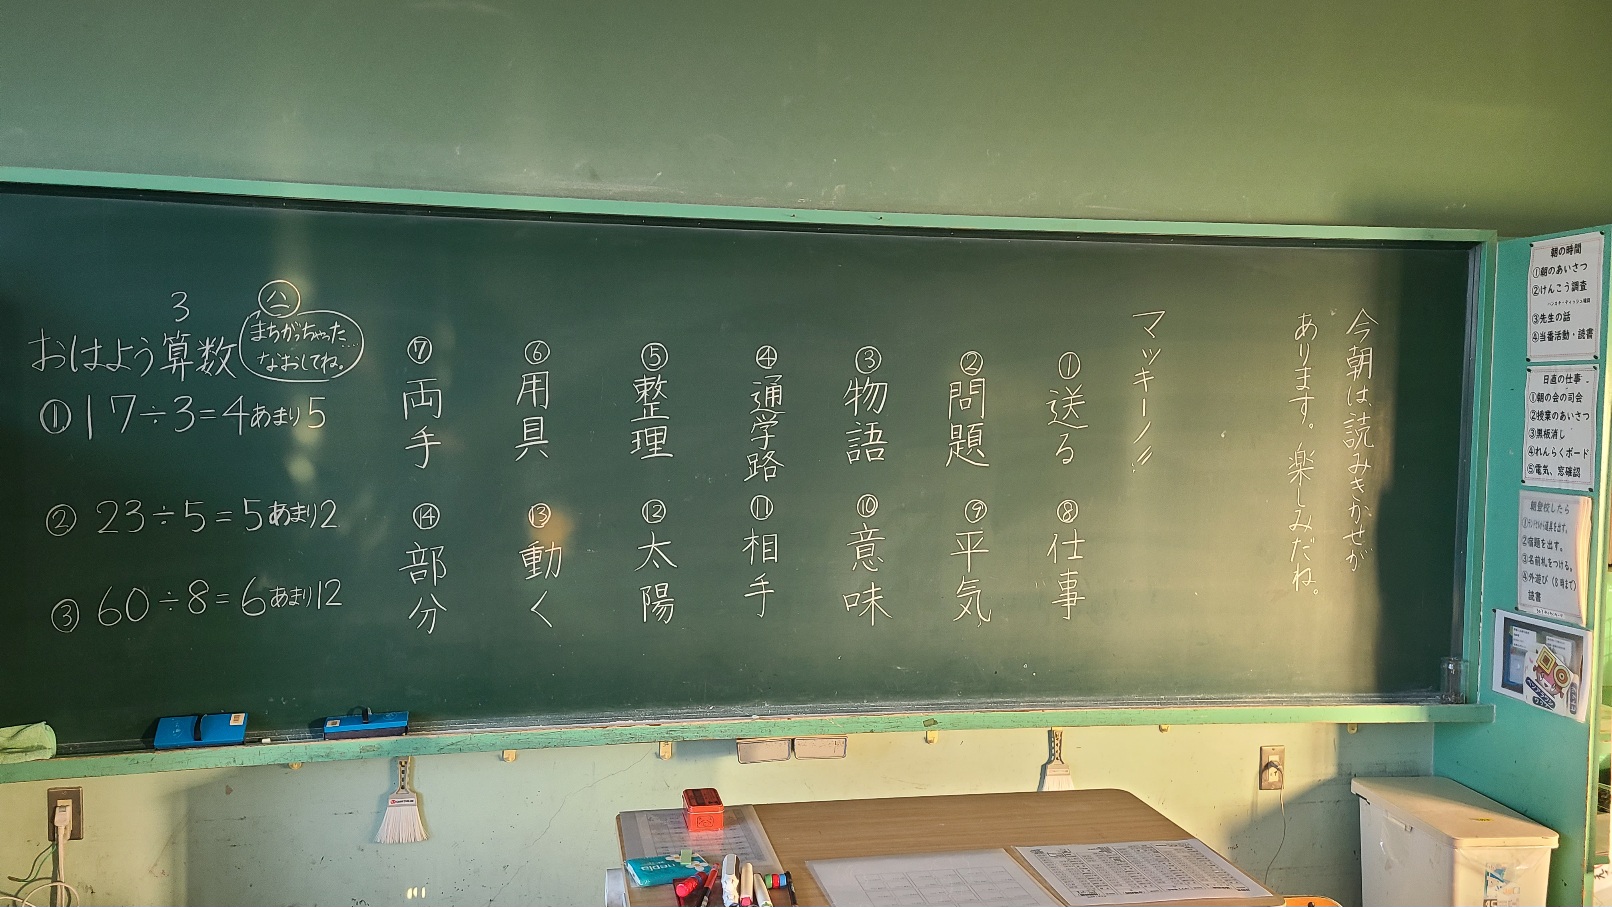 今朝は読みきかせが
あります。楽しみだね。
マッキーノ!!
①送る
②問題
③物語
④通学路
⑤整理
⑥用具
⑦両手
⑧仕事
⑨平気
⑩意味
⑪相手
⑫太陽
⑬動く
⑭部分
3
おはよう算数
まちがっちゃった…
なおしてね。
① 17÷3=4あまり5
② 23÷5=5あまり2
③ 60÷8=6あまり12
朝の時間
①朝のあいさつ
②けんこう調査
③先生の話
④当番活動・読書
日直の仕事
①朝の会の司会
②授業のあいさつ
③黒板消し
④れんらくボード
⑤電気、窓確認
朝登校したら
②宿題を出す。
③名前札をつける。
④外遊び(8時まで)
読書
nepia